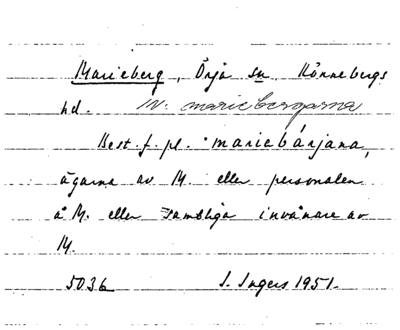 Marieberg, Örja sn Rönnebergs
hd. Iv. mariebergarna
Best. f. pl. mariebárjana,
ägarna av M. eller personalen
å M. eller samtliga invånare av
M.
5036 I. Ingers 1951.